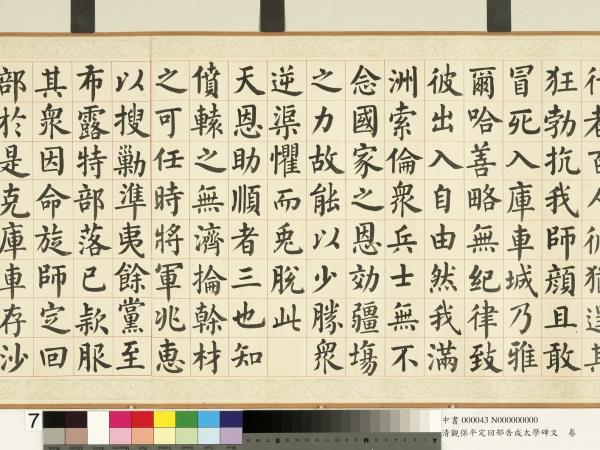 行者百人
狂勃抗我師顏且敢
冒死入庫車城乃雅
爾哈善略無紀律致
彼出入自由然我滿
洲索倫衆兵士無不
念國家之恩効疆塲
之力故能以少勝衆
逆渠懼而兎脫此
天恩助順者三也知
僨轅之無濟掄榦材
之可任時將軍兆惠
以搜勦準夷餘黨至
布露特部落已款服
其衆因命旋師定回
部於是克庫車存沙
7
中書 000043 N000000000
清觀保平定回部告成太學碑文 卷